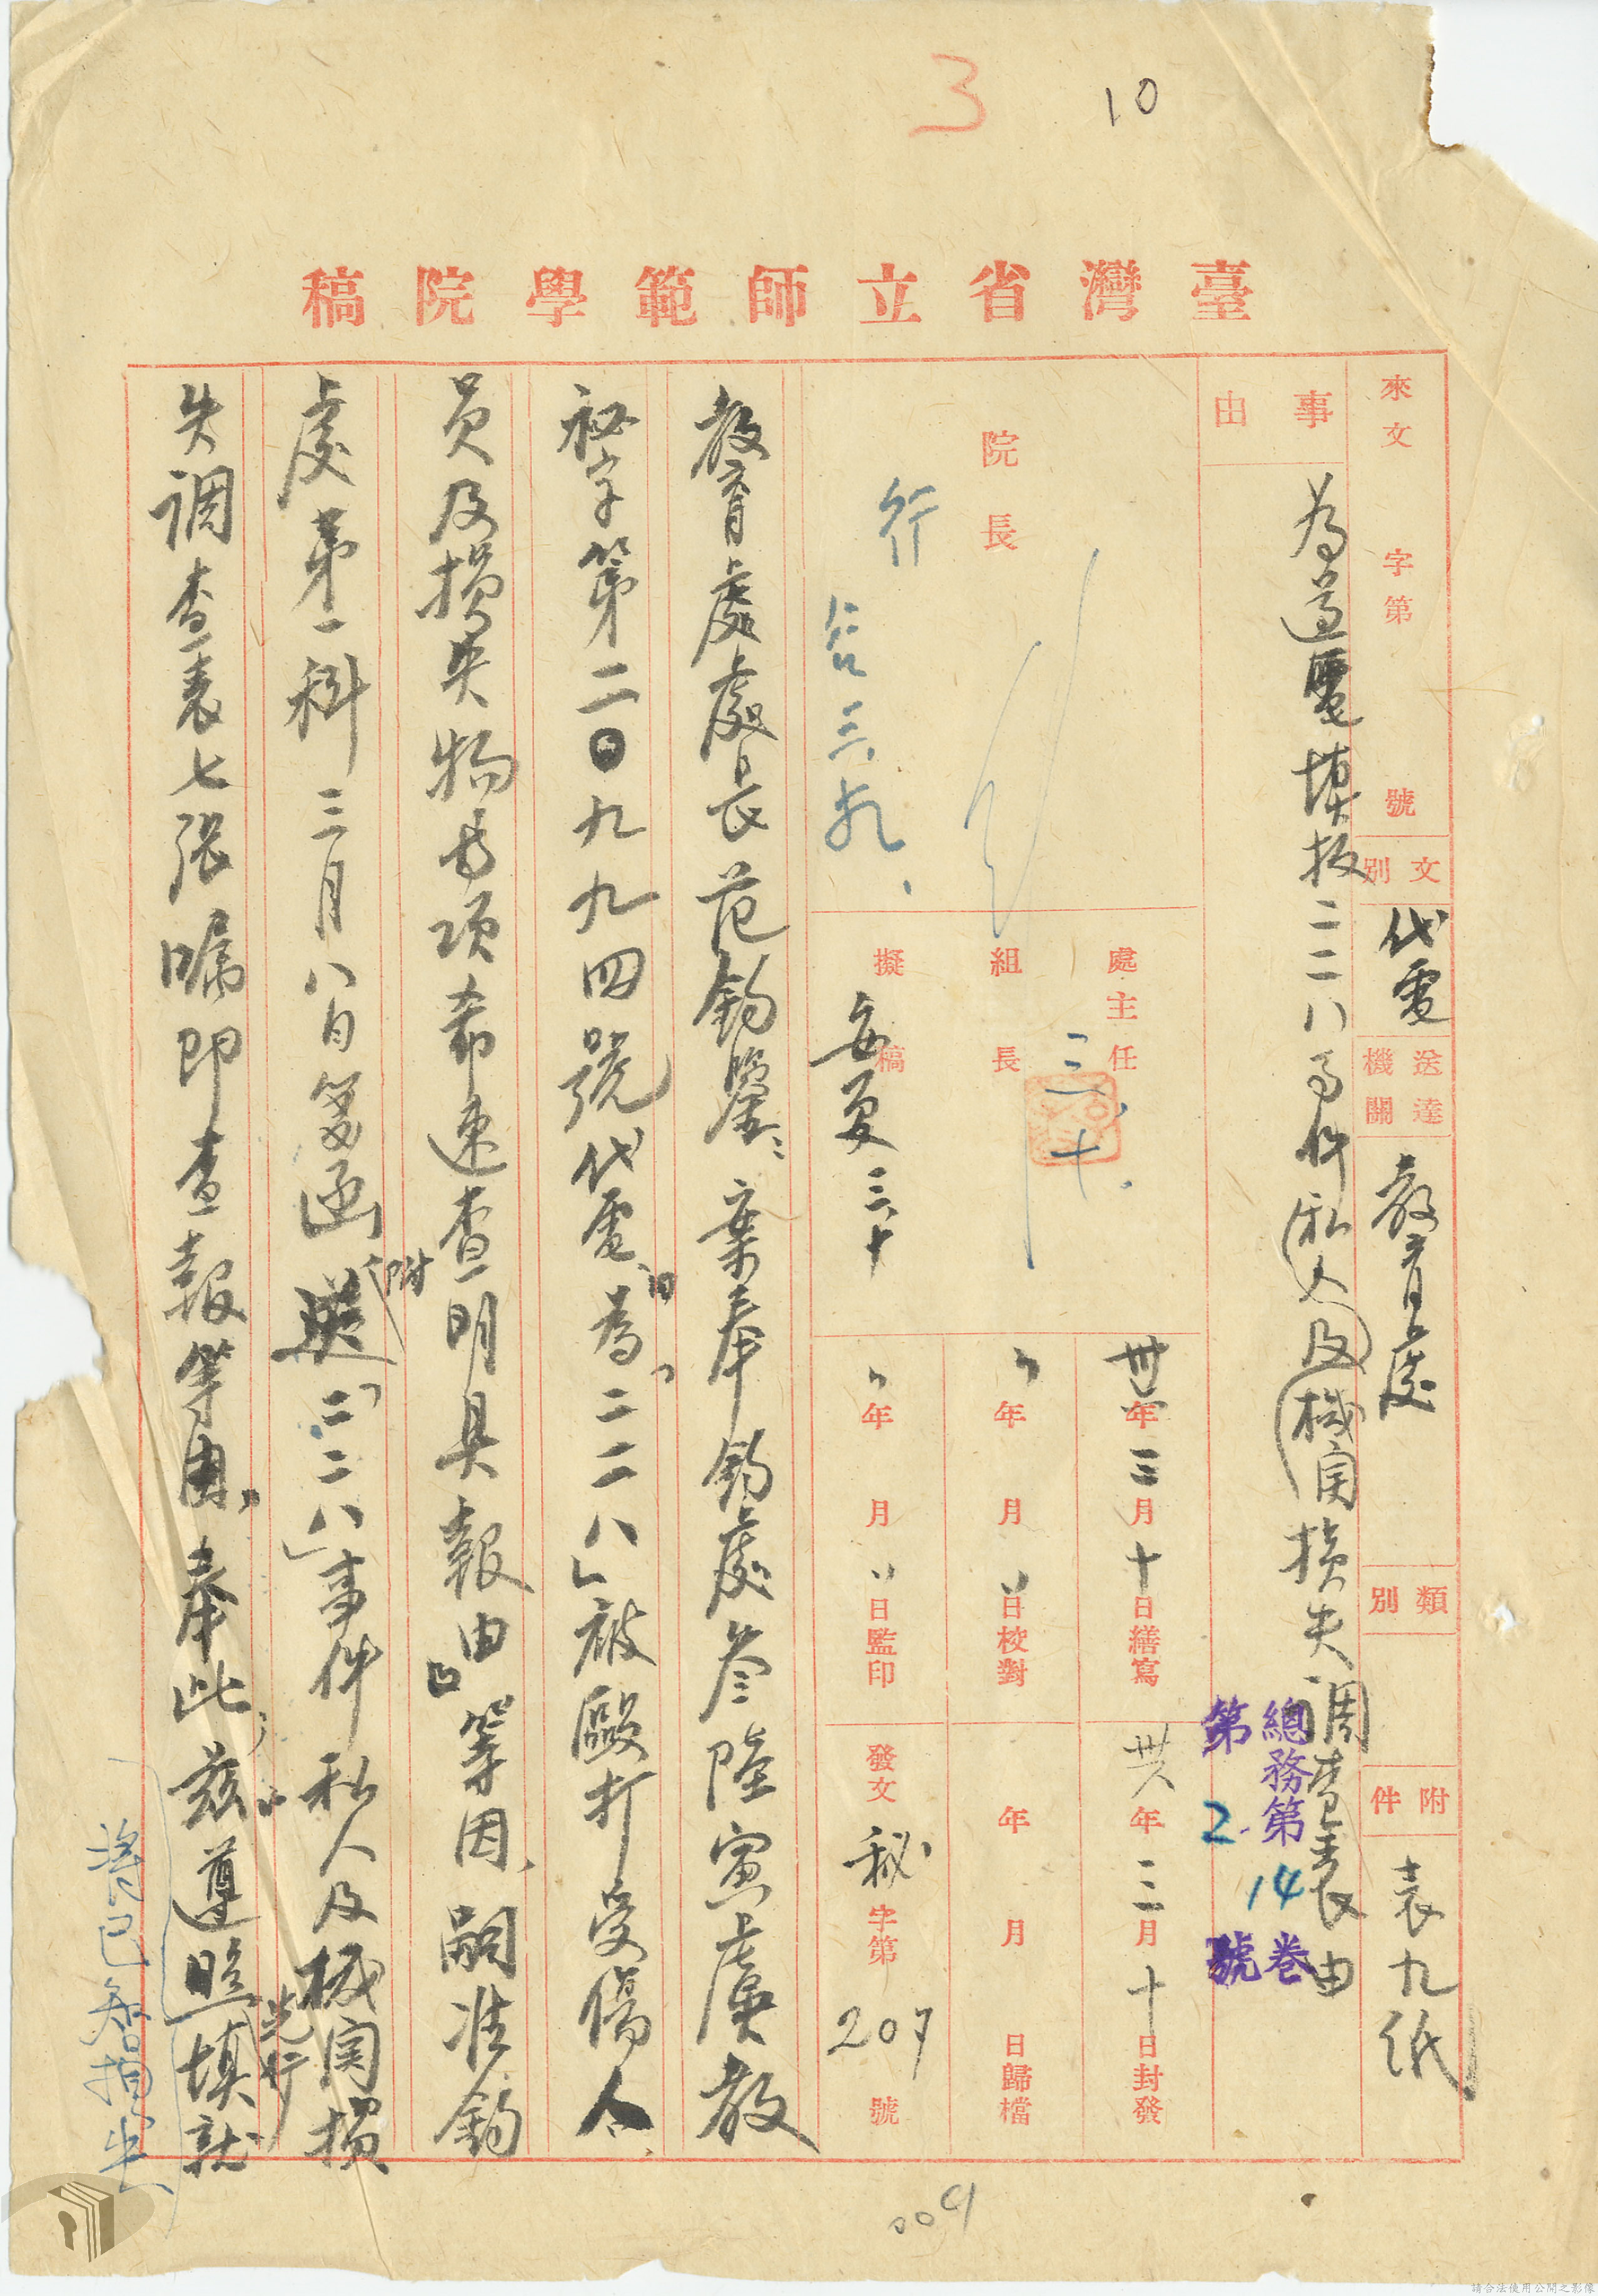 3
10
臺灣省立師範學院稿
來文 字第 號
文別 代電
送達機關 教育處
類別
附件 表九紙
事由 為遵電填報二二八事件私人及機関損失調查表由
總務第14卷
第2號
院長 行
處主任 三.十.
組長
擬稿 三、十
卅六年三月十日繕寫
年 月 日校對
年 月 日監印
卅六年三月十日封發
年 月 日歸檔
發文秘字第207號
教育處處長范鈞鑒：案奉鈞處叄陸寅虞教
秘字第二〇九九四號代電為「二二八」被毆打受傷人
員及損失物專項希速查明具報由等因，嗣准鈞
處第一科三月八日箋函附送「二二八」事件私人及機関損
失調查表七張囑即查報等由，奉此，茲遵照填就
先行
009
請合法使用公開之影像